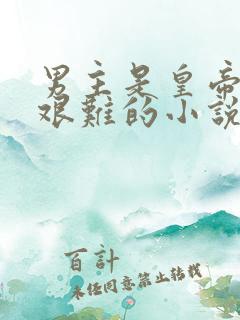 男主是皇帝
艰难的小說
百計
未经同意禁止转载